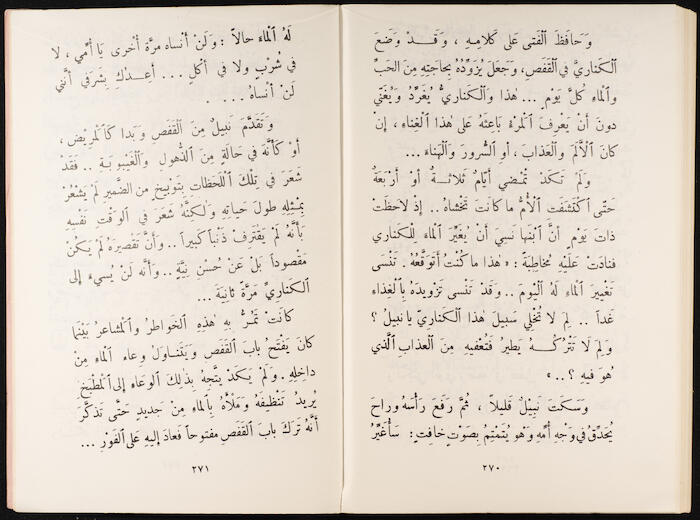 وَحَافَظَ ٱلْفَتى عَلى كَلَامِهِ ، وَقَـدْ وَضَعَ
ٱلْكَنارِيَّ في ٱلْقَفَصِ، وَجَعَلَ يُزَوِّدُهُ بِحَاجَتِهِ مِنَ ٱلْحَبِّ
وَٱلْماءِ كُلَّ يَوْمٍ ... هٰذا وَٱلْكَنَارِيُّ يُغَرِّدُ وَيُغَنّي
دونَ أَنْ يَعْرِفَ ٱلْمَرْءُ بَاعِثَهُ عَلى هٰذا ٱلْغِناءِ، إِنْ
كانَ ٱلْأَلَمَ وَٱلْعَذابَ ، أَوِ ٱلسُّرورَ وَٱلْهَناءَ ...
وَلَمْ تَكَدْ تَمْـضي أَيّامٌ ثَلاثَـةٌ أَوْ أَرْبَعَةٌ
حَتّى ٱكْتَشَفَتِ ٱلْأُمُّ ما كانَتْ تَخْشاهُ .. إِذْ لاحَظَتْ
ذاتَ يَوْمٍ أَنَّ ٱبْنَها نَسِيَ أَنْ يُغَيِّرَ ٱلْماءَ لِلْكَناري
فَنادَتْ عَلَيْهِ مُخاطِبَةً : « هٰذا ما كُنْتُ أَتَوَقَّعُهُ . تَنْسى
تَغْييرَ ٱلْماءِ لَهُ ٱلْيَوْمَ .. وَقَدْ تَنْسى تَزْويدَهُ بِٱلْغِذاءِ
غَداً .. لِمَ لا تُخْلي سَبيلَ هٰذا ٱلْكَنارِيِّ يا نَبيلُ ؟
وَلِمَ لا تَتْرُكُـــهُ يَطيرُ فَتُعْفيهِ مِنَ ٱلْعَذابِ ٱلَّذي
هُوَ فيهِ ؟ .. »
وَسَكَتَ نَبيلٌ قَليلاً ، ثُمَّ رَفَعَ رَأْسَهُ وَراحَ
يُحَدِّقُ في وَجْهِ أُمِّهِ وَهْوَ يُتَمْتِمُ بِصَوْتٍ خافِتٍ: سَأُغَيِّرُ
٢٧٠
لَهُ ٱلْماءَ حالاً : وَلَنْ أَنْساهُ مَرَّةً أُخْرى يا أُمّي ، لا
في شُرْبٍ ولا في أَكْلٍ ... أَعِـدُكِ بِشَرَفي أَنَّني
لَنْ أَنْساهُ ... .
وَتَقَدَّمَ نَبيلٌ مِنَ ٱلْقَفَصِ وَبَدا كَٱلْمَريضِ ،
أَوْ كَأَنَّهُ في حالَةٍ مِنَ ٱلذُّهولِ وَٱلْغَيْبوبَـةِ .. فَقَدْ
شَعَرَ في تِلْكَ ٱللَّحَظاتِ بِتَوْبيخٍ مِن الضَّميرِ لَمْ يَشْعُرْ
بِمِثْلِهِ طولَ حَياتِهِ وَلٰكِنَّهُ شَعَرَ في ٱلْوَقْتِ نَفْسِهِ
بِأَنَّهُ لَمْ يَقْتَرِفْ ذَنْباً كَبيراً .. وَأَنَّ تَقْصيرَهُ لَمْ يَكُنْ
مَقْصوداً بَلْ عَنْ حُسْنِ نِيَّةٍ .. وَأَنَّهُ لَنْ يُسيءَ إِلى
ٱلْكَنارِيِّ مَرَّةً ثانِيَةً ...
كانَتْ تَمُرُّ بِهِ هٰذِهِ ٱلْخَواطِرُ وَٱلْمَشاعِرُ بَيْنَما
كانَ يَفْتَحُ بابَ ٱلْقَفَصِ وَيَتَناوَلُ وِعاءَ ٱلْماءِ مِنْ
داخِلِهِ . وَلَمْ يَكَدْ يَتَّجِهُ بِذٰلِكَ ٱلْوِعاءِ إِلى ٱلْمَطْبَخِ
يُريدُ تَنْظيفَهُ وَمَلْأَهُ بِٱلْماءِ مِنْ جَديدٍ حَتّى تَذَكَّرَ
أَنَّهُ تَرَكَ بابَ ٱلْقَفَصِ مَفْتوحاً فَعادَ إِلَيْهِ عَلى ٱلْفَوْرِ ...
٢٧١